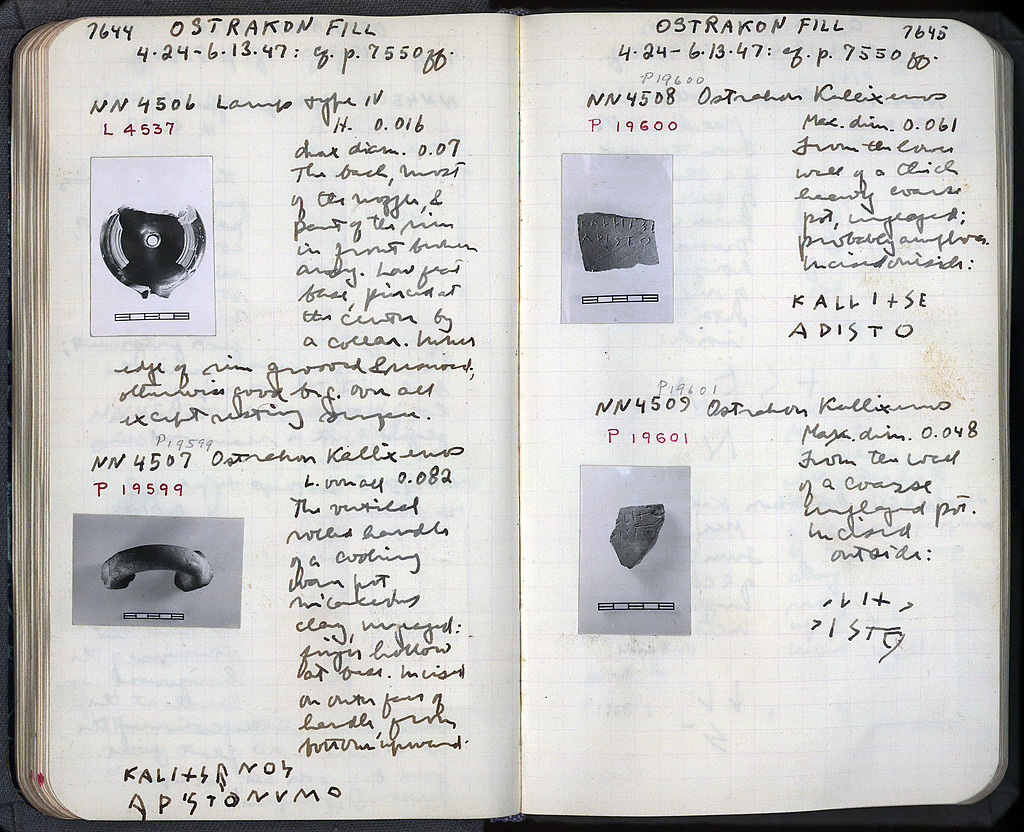 7644 OSTRAKON FILL
4·24-6·13·47: cf. p. 7550 ff.
NN 4506 Lamp type IV
L 4537
H. 0.016
Max diam. 0.07
The back, most
of the nozzle, &
part of the rim
in front broken
away. Low flat
base, pierced at
the centre by
a collar. Inner
edge of rim grooved & reserved;
otherwise good b.g. over all
except resting surface.
P19599
NN 4507 Ostrakon Kallixenos
P 19599
L. overall 0.082
The vertical
rolled handle
of a cooking
ware pot
micaceous
clay, unglazed:
finger hollow
at base. Incised
on outer face of
handle, from
bottom upward.
KALI+S NOS
ARISTONVMO
OSTRAKON FILL 7645
4·24-6·13·47: cf. p. 7550 ff.
P19600
NN 4508 Ostrakon Kallixenos
P 19600
Max. dim. 0.061
From the lower
wall of a thick
heavy coarse
pot, unglazed;
probably amphora.
Incised outside:
KALLI+SE
ARISTO
P19601
NN 4509 Ostrakon Kallixenos
P 19601
Max. dim. 0.048
From the wall
of a coarse
unglazed pot.
Incised
outside:
LI+
ISTO